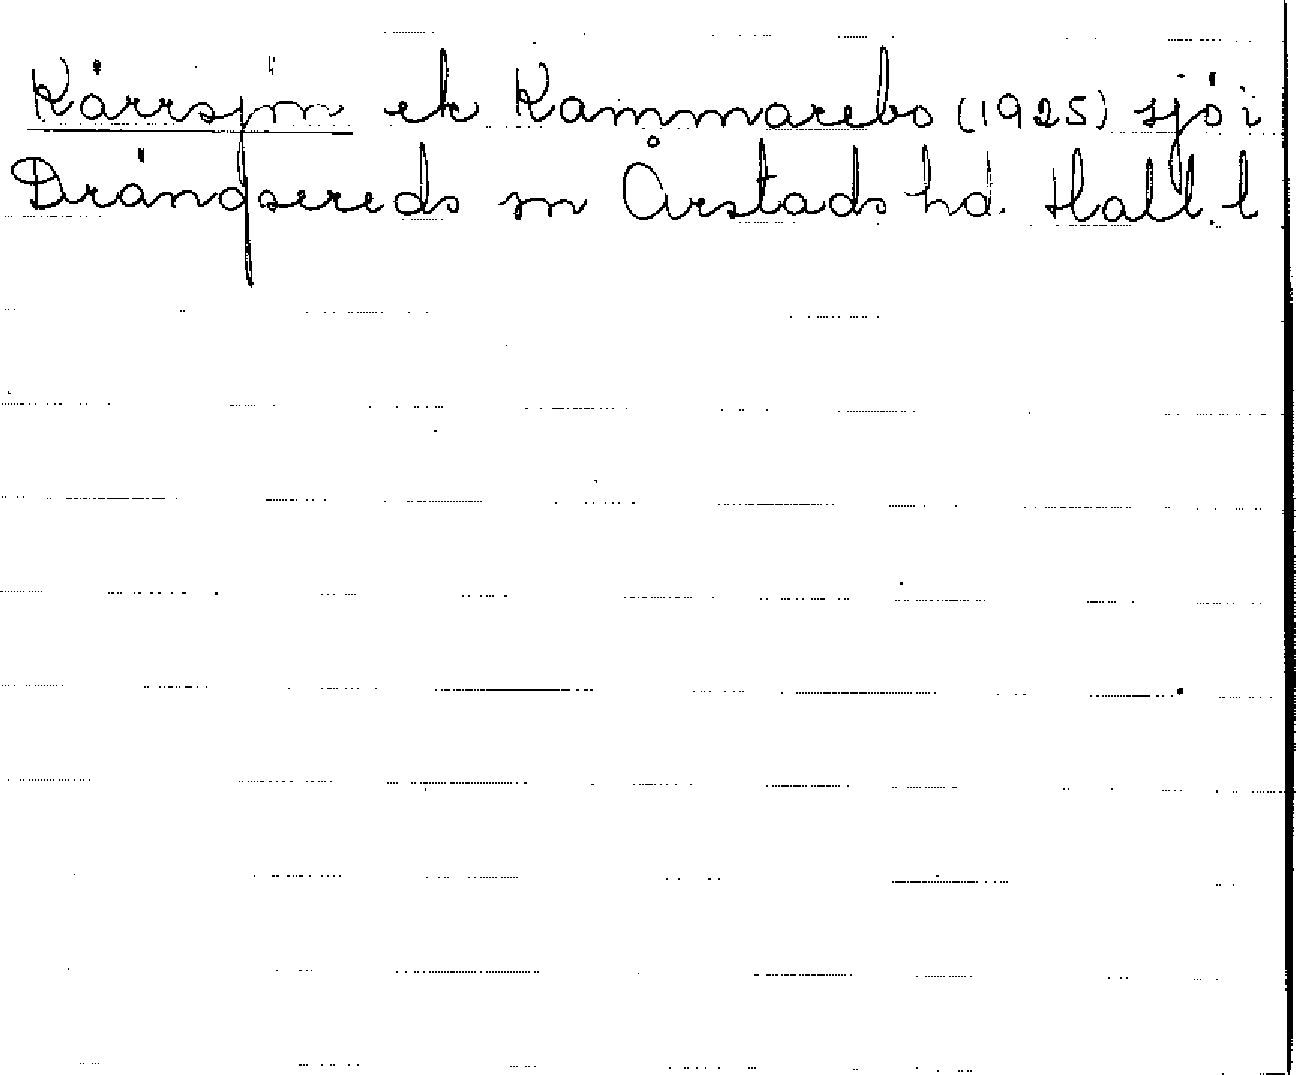 Kärrsjön ek Kammarebo (1925) sjö i
Drängsereds sn Årstads hd. Hall. l